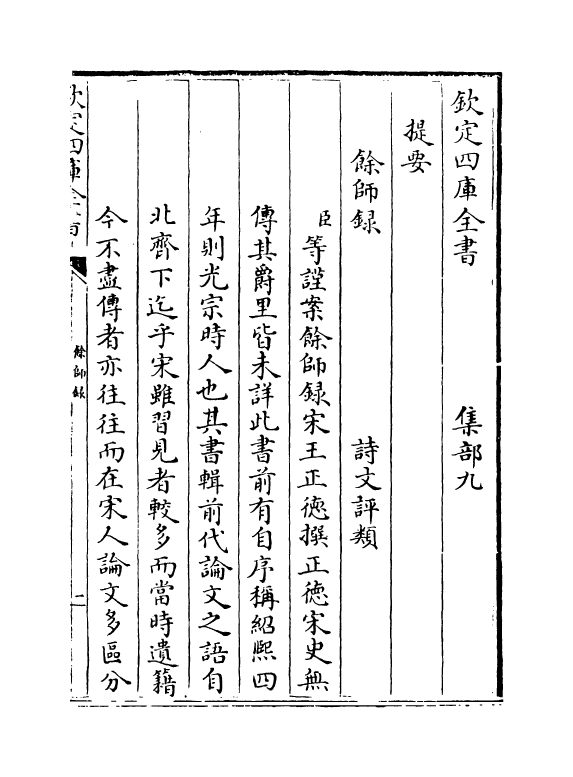 欽定四庫全書　集部九
提要
餘師録　詩文評類
臣等謹案餘師録宋王正徳撰正徳宋史無
傳其爵里皆未詳此書前有自序稱紹熙四
年則光宗時人也其書輯前代論文之語自
北齊下迄乎宋雖習見者較多而當時遺籍
今不盡傳者亦往往而在宋人論文多區分
欽定四庫全書
餘師録